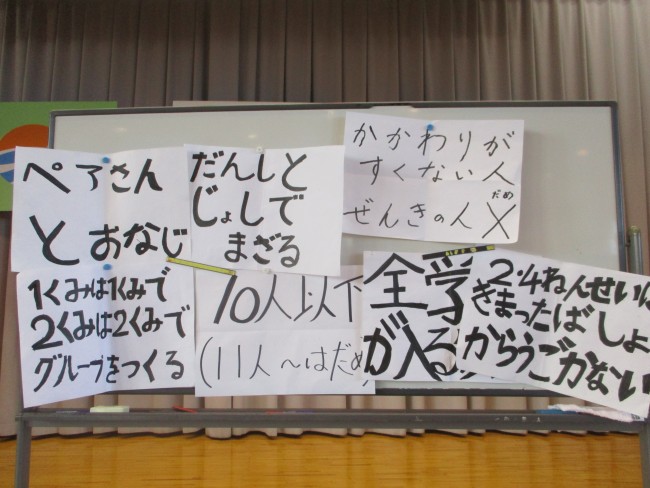 ペアさん
とおなじ
だんしと
じょしで
まざる
かかわりが
すくない人
ぜんきの人 だめ X
1くみは1くみで
2くみは2くみで
グループをつくる
10人以下
(11人〜はだめ
全学
が入る
2・4ねんせいは
きまったばしょ
からうごかない